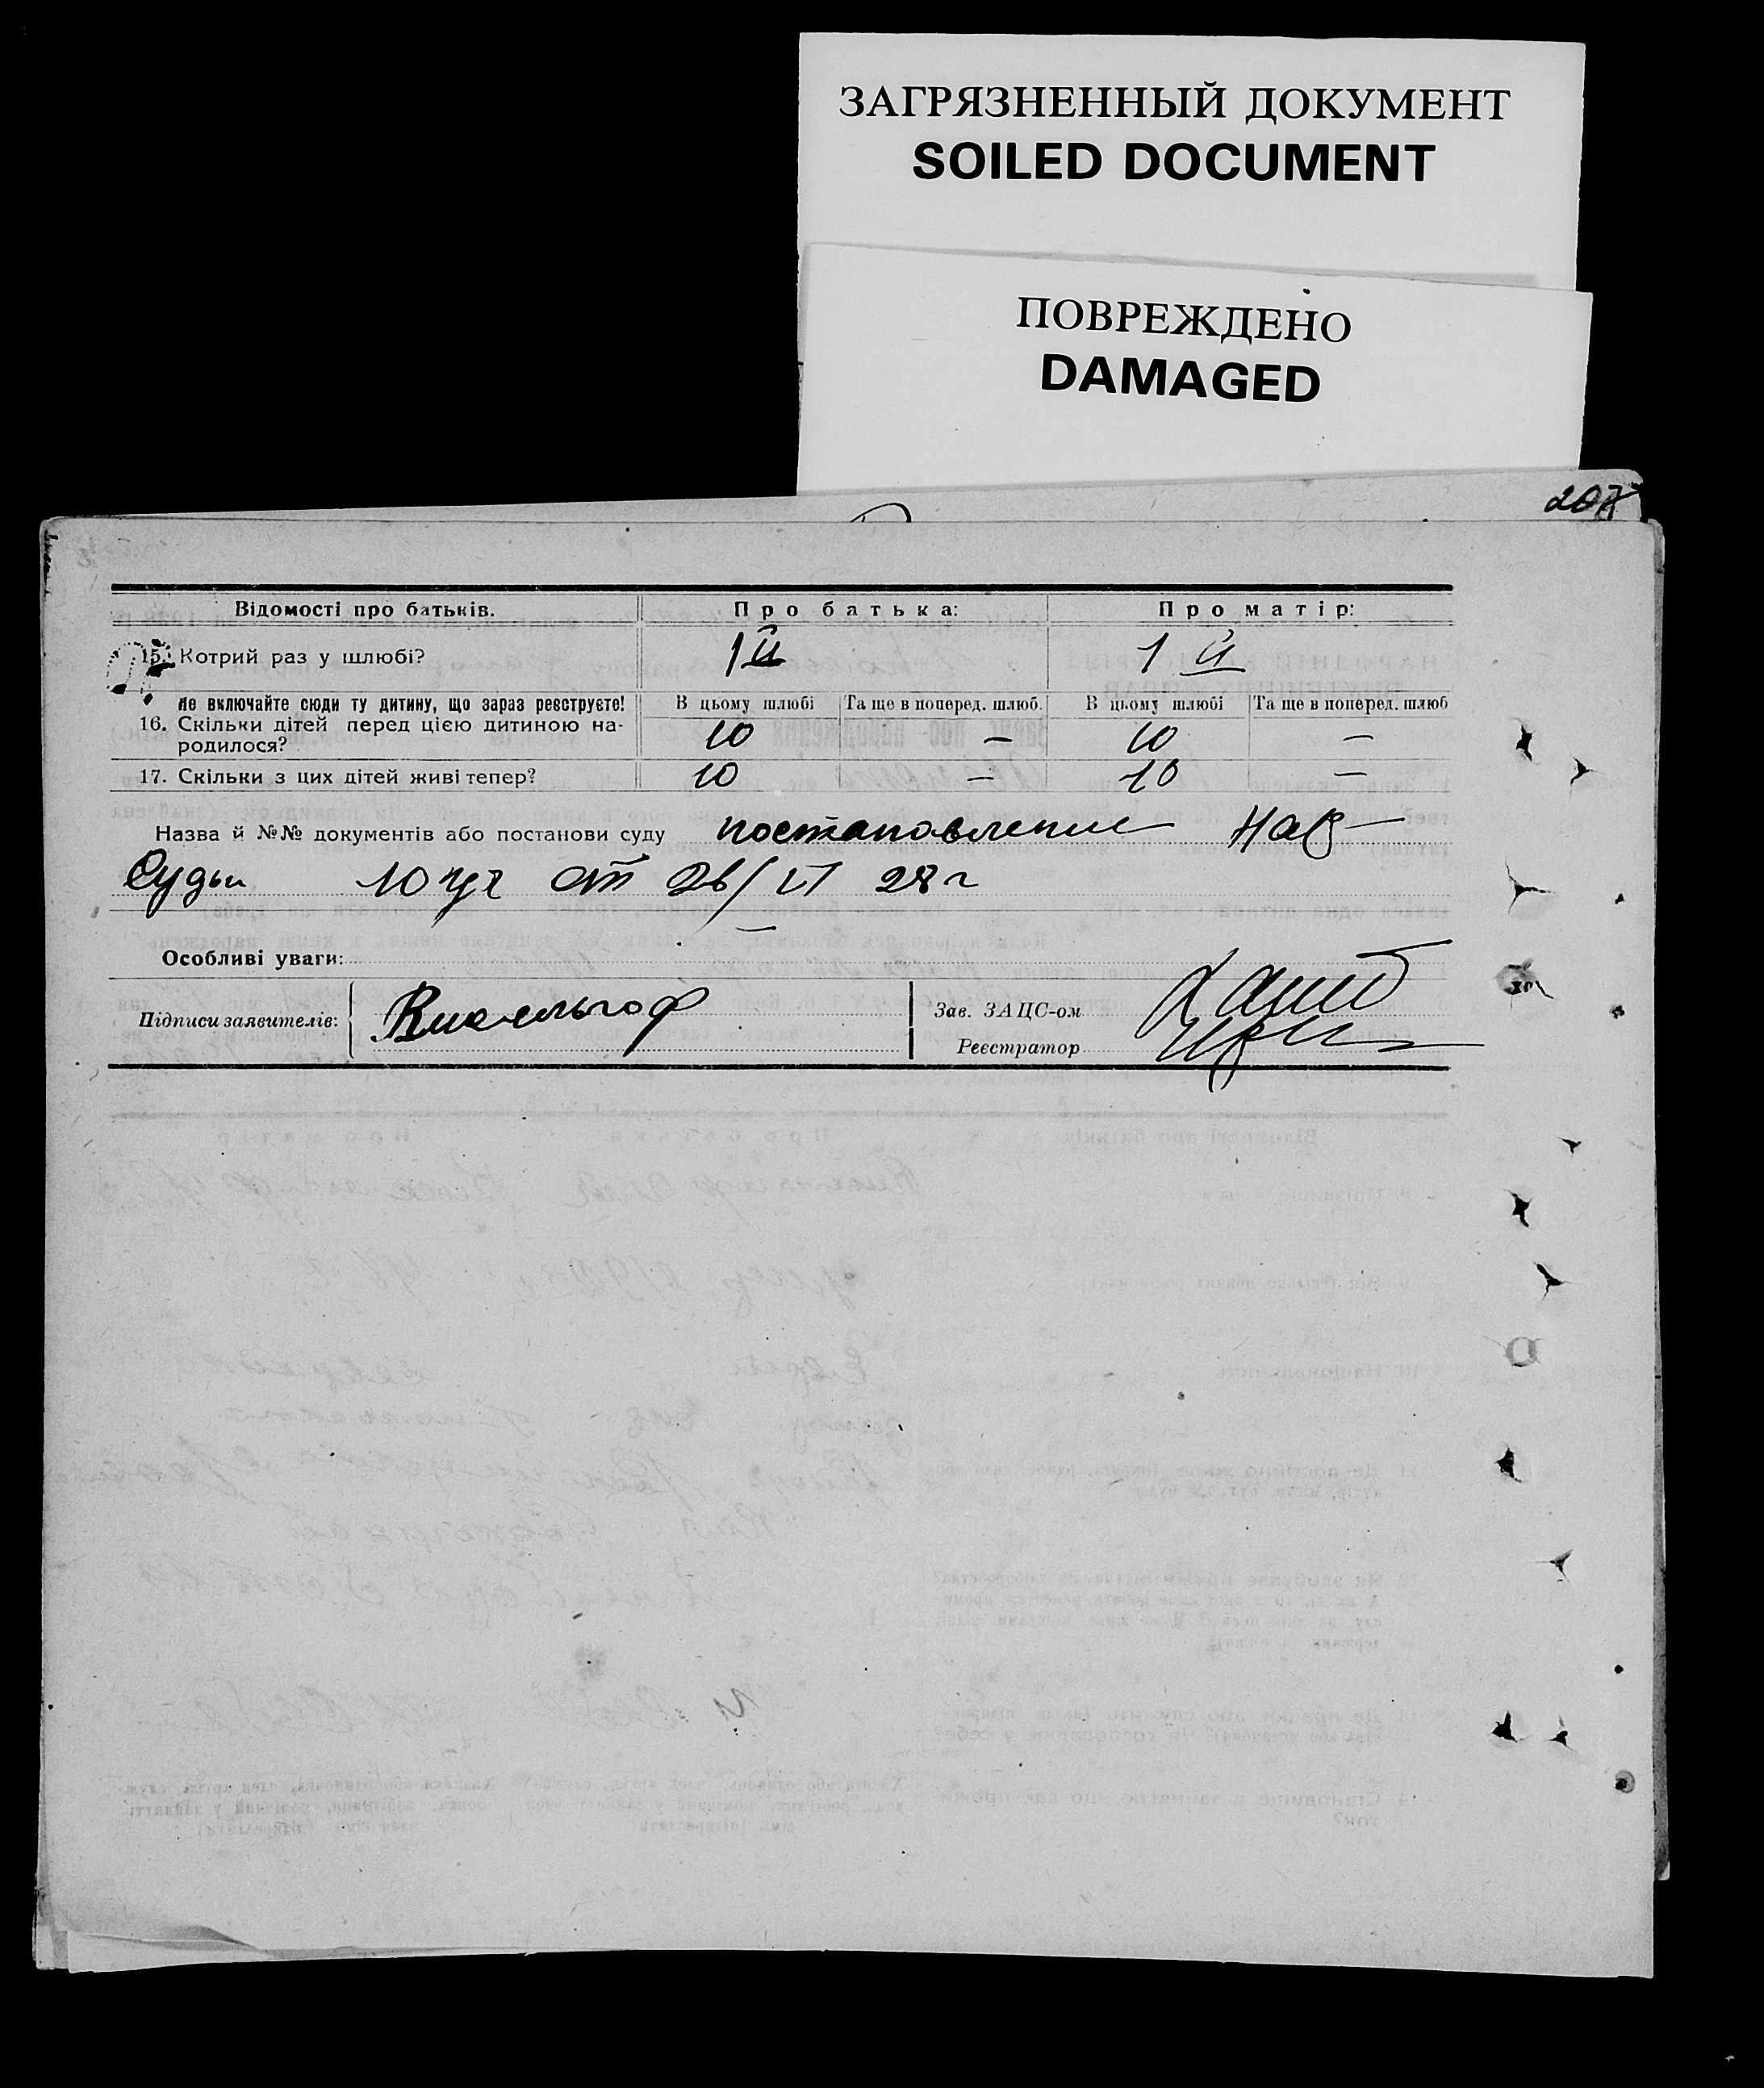 ЗАГРЯЗНЕННЫЙ ДОКУМЕНТ
SOILED DOCUMENT
ПОВРЕЖДЕНО
DAMAGED
207
Відомості про батьків.
Про батька:
Про матір:
15. Котрий раз у шлюбі?
1й
1й
Не включайте сюди ту дитину, що зараз реєструєте!
В цьому шлюбі
Та ще в поперед. шлюб.
В цьому шлюбі
Та ще в поперед. шлюб
16. Скільки дітей перед цією дитиною на-
родилося?
10
—
10
—
17. Скільки з цих дітей живі тепер?
10
—
10
—
Назва й №№ документів або постанови суду постановление Нар
Судьи 10 уч от 26/VI 28 г
Особливі уваги: —
Підписи заявителів:
Зав. ЗАЦС-ом
Реєстратор